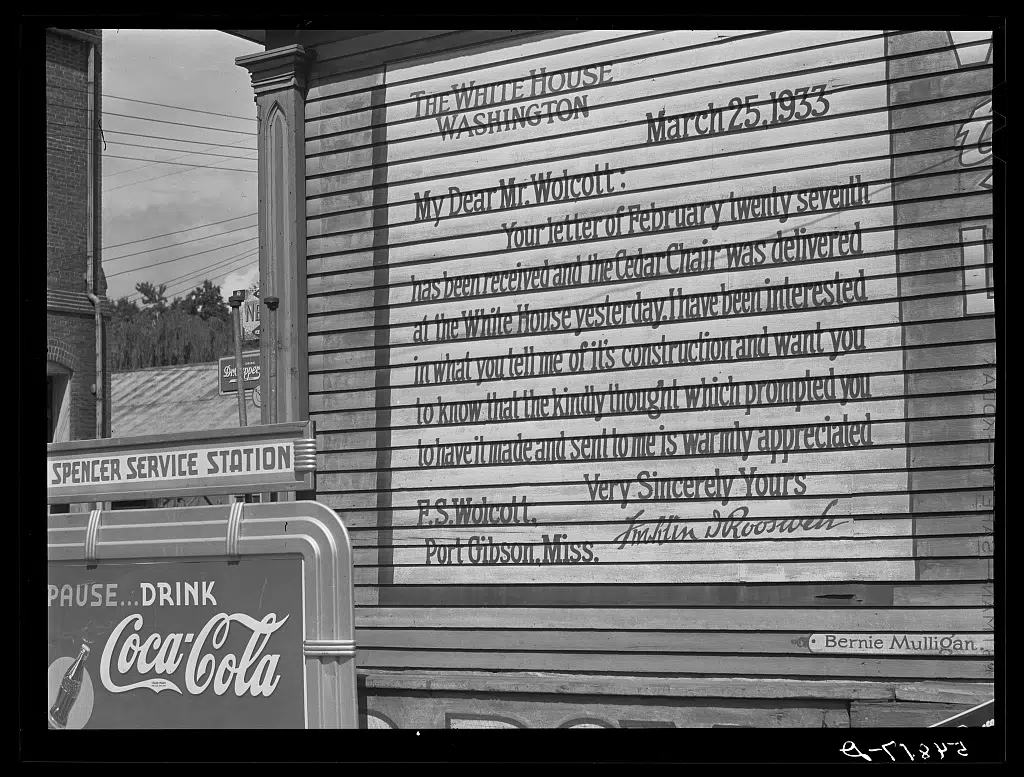 THE WHITE HOUSE
WASHINGTON
March 25, 1933
My Dear Mr. Wolcott:
Your letter of February twenty seventh
has been received and the Cedar Chair was delivered
at the White House yesterday. I have been interested
in what you tell me of it's construction and want you
to know that the kindly thought which prompted you
to have it made and sent to me is warmly appreciated
Very Sincerely Yours
F.S. Wolcott.
Franklin D Roosevelt
Port Gibson, Miss.
Bernie Mulligan.
Dr. Pepper
SPENCER SERVICE STATION
PAUSE...DRINK
Coca-Cola
54817-D